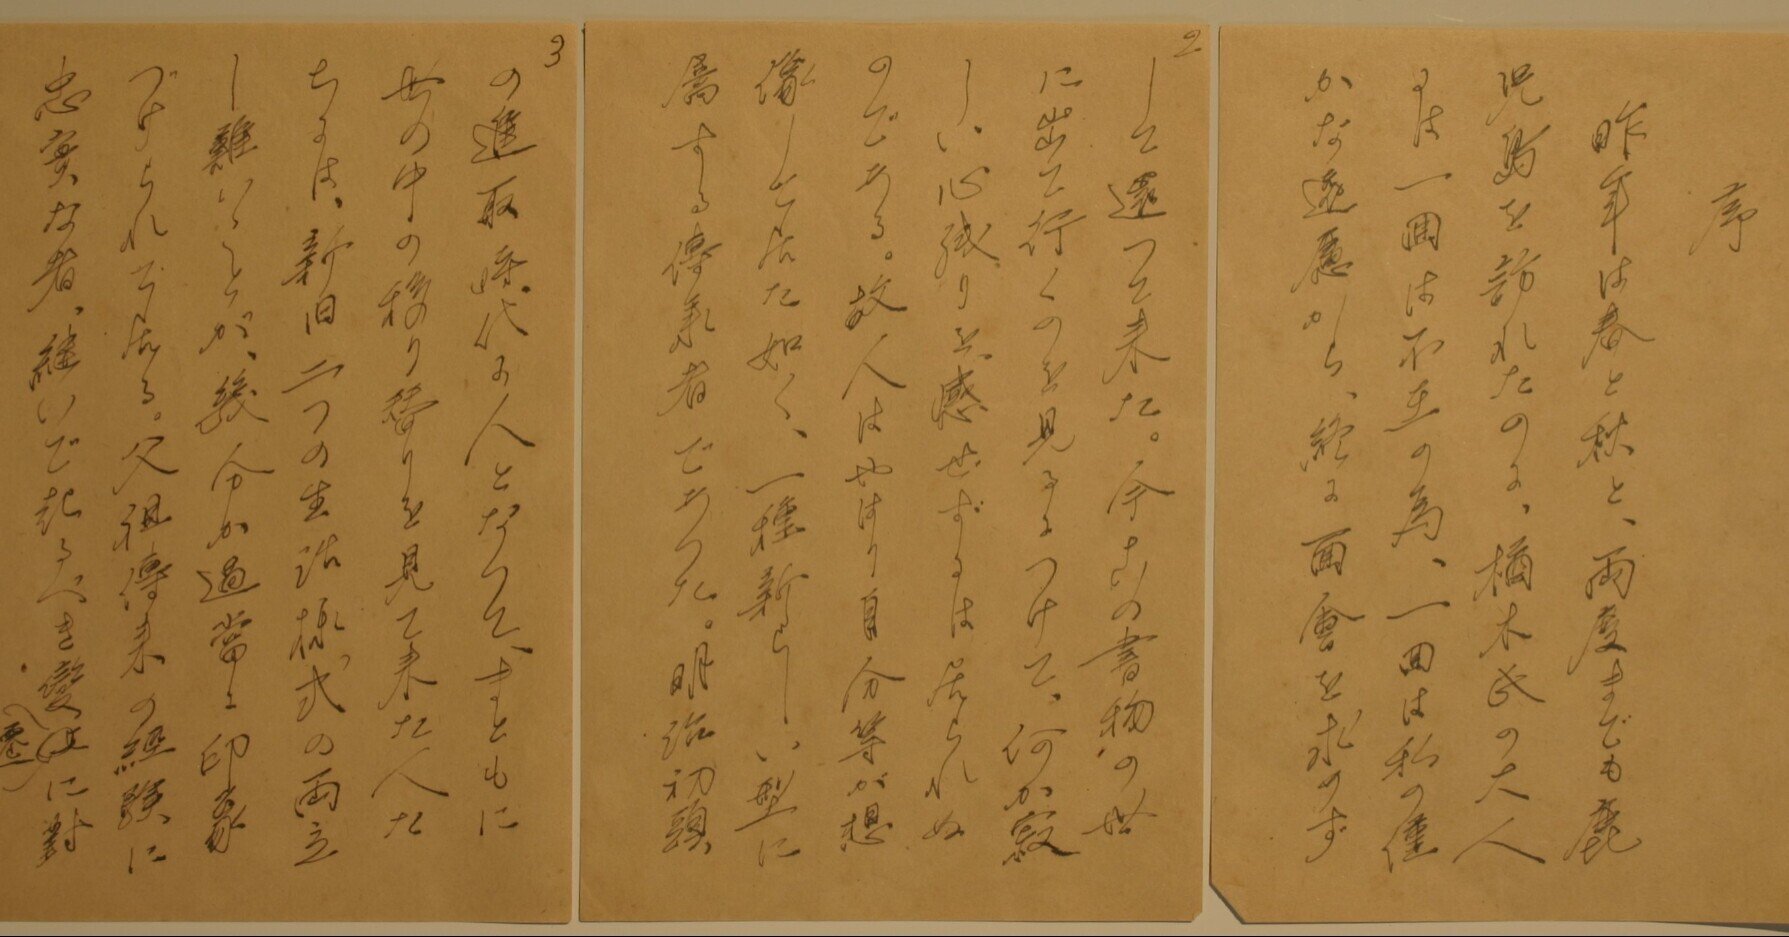 序
昨年は春と秋と、両度までも鹿
児島を訪れたのに、楢木氏の大人
には一回は不在の為、一回は私の僅
かな遠慮から、終に面會を求めず
2
して還つて来た。今この書物の世
に出て行くのを見るにつけて、何か寂
しい心残りを感ぜずには居られぬ
のである。故人はやはり自分等が想
像して居た如く、一種新らしい型に
属する傳承者であつた。明治初頭
3
の進取時代に人となつて、まともに
世の中の移り替りを見て来た人た
ちには、新旧二つの生活様式の両立
し難いことが、幾分か過當に印象
づけられて居る。父祖傳来の経験に
忠実な者、継いで起るべき變
遷
に對